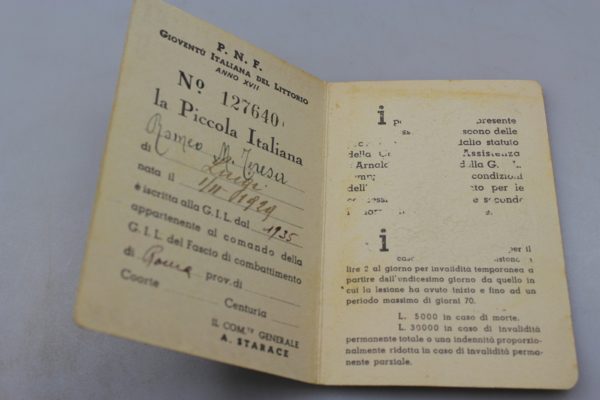 P. N. F.
GIOVENTÙ ITALIANA DEL LITTORIO
ANNO XVII
Nº 127640
la Piccola Italiana
Romeo M. Teresa
di Luigi
nata il 1/11/1929
è iscritta alla G.I.L. dal 1935
appartenente al comando della
G.I.L. del Fascio di combattimento
di Roma prov. di
Coorte Centuria
IL COM.TE GENERALE
A. STARACE
i presente
scono delle
dallo statuto
della Assistenza
Arnal della G. L.
condizioni
dell' to per le
secondo
i
per il
caso
lire 2 al giorno per invalidità temporanea a
partire dall'undicesimo giorno da quello in
cui la lesione ha avuto inizio e fino ad un
periodo massimo di giorni 70.
L. 5000 in caso di morte.
L. 30000 in caso di invalidità
permanente totale o una indennità proporzio-
nalmente ridotta in caso di invalidità perma-
nente parziale.